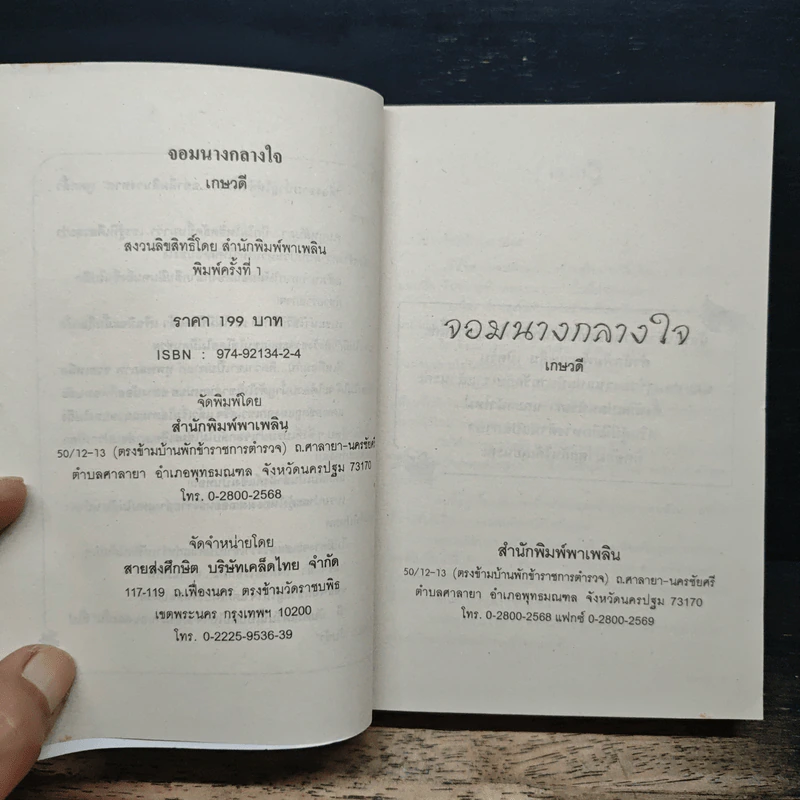 จอมนางกลางใจ
เกษวดี
สงวนลิขสิทธิ์โดย สำนักพิมพ์พาเพลิน
พิมพ์ครั้งที่ 1
ราคา 199 บาท
ISBN : 974-92134-2-4
จัดพิมพ์โดย
สำนักพิมพ์พาเพลิน
50/12-13 (ตรงข้ามบ้านพักข้าราชการตำรวจ) ถ.ศาลายา-นครชัยศรี
ตำบลศาลายา อำเภอพุทธมณฑล จังหวัดนครปฐม 73170
โทร. 0-2800-2568
จัดจำหน่ายโดย
สายส่งศึกษิต บริษัทเคล็ดไทย จำกัด
117-119 ถ.เฟื่องนคร ตรงข้ามวัดราชบพิธ
เขตพระนคร กรุงเทพฯ 10200
โทร. 0-2225-9536-39
จอมนางกลางใจ
เกษวดี
สำนักพิมพ์พาเพลิน
50/12-13 (ตรงข้ามบ้านพักข้าราชการตำรวจ) ถ.ศาลายา-นครชัยศรี
ตำบลศาลายา อำเภอพุทธมณฑล จังหวัดนครปฐม 73170
โทร. 0-2800-2568 แฟกซ์ 0-2800-2569